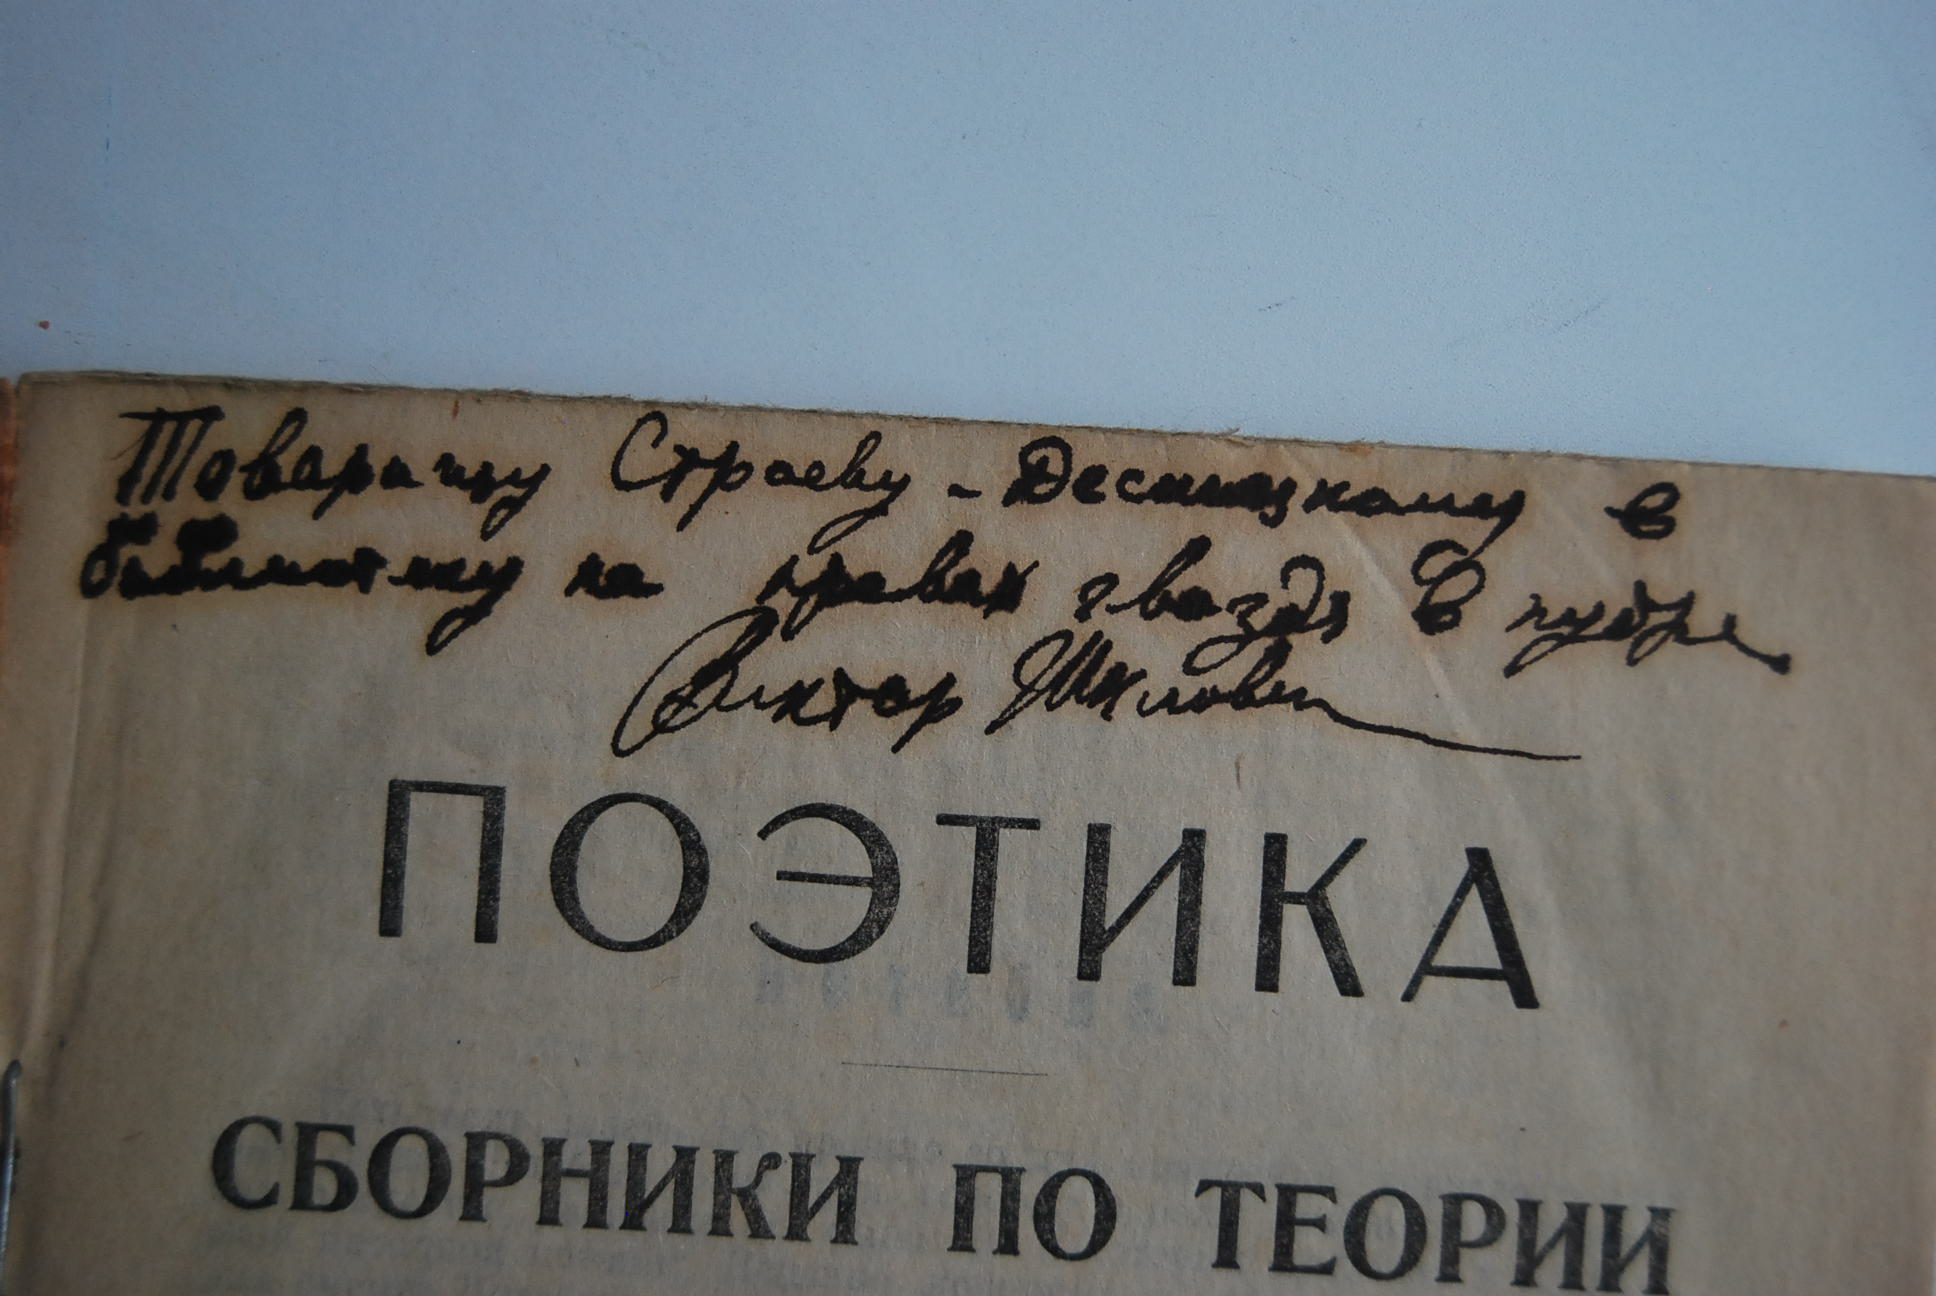 Товарищу Строеву-Десницкому в
библиотеку на правах гвоздя в пудре
Виктор Шкловский
ПОЭТИКА
СБОРНИКИ ПО ТЕОРИИ